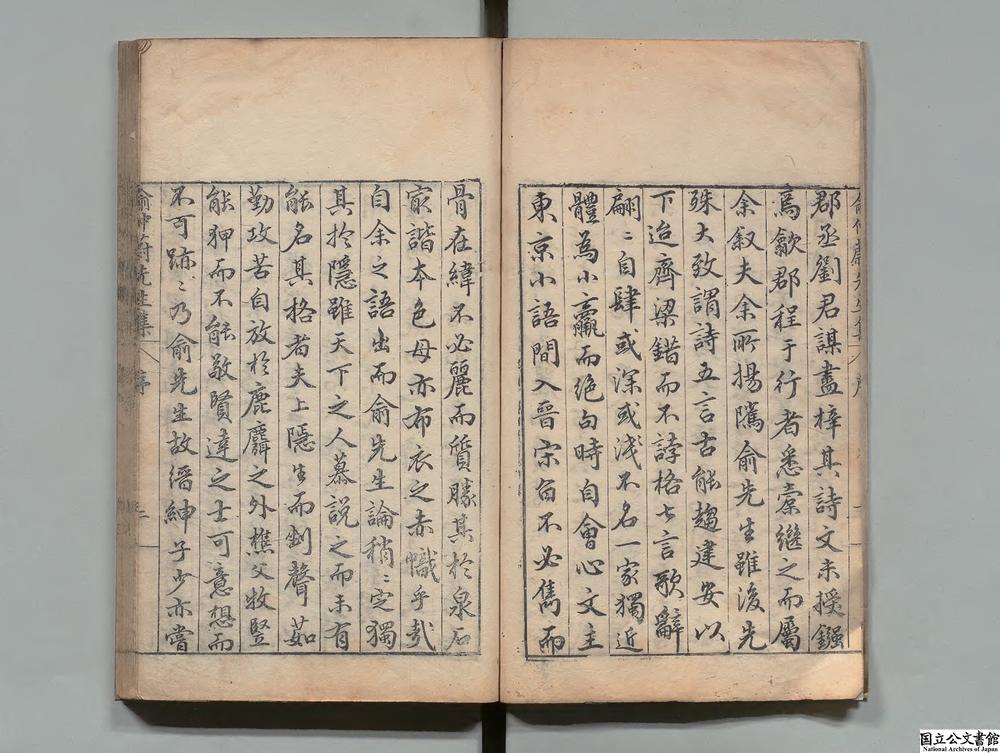 郡丞劉君謀盡梓其詩文未授鏹
為歙郡程于行者悉索繼之而屬
余叙夫余所揚隲俞先生雖後先
殊大致謂詩五言古能趨建安以
下迨齊梁錯而不誖格七言歌辭
翩〻自肆或深或淺不名一家獨近
體為小羸而絕句時自會心文主
東京小語間入晉宋旨不必雋而
骨在緯不必麗而質勝其於泉石
家諧本色毋亦布衣之赤幟乎哉
自余之語出而俞先生論稍〻定獨
其於隱雖天下之人慕說之而未有
能名其格者夫上隱生而剷聲茹
勤攻苦自放於鹿麛之外樵父牧豎
能狎而不能敬賢達之士可意想而
不可跡〻乃俞先生故縉紳子少亦嘗
俞仲蔚先生集 序 二
国立公文書館
National Archives of Japan